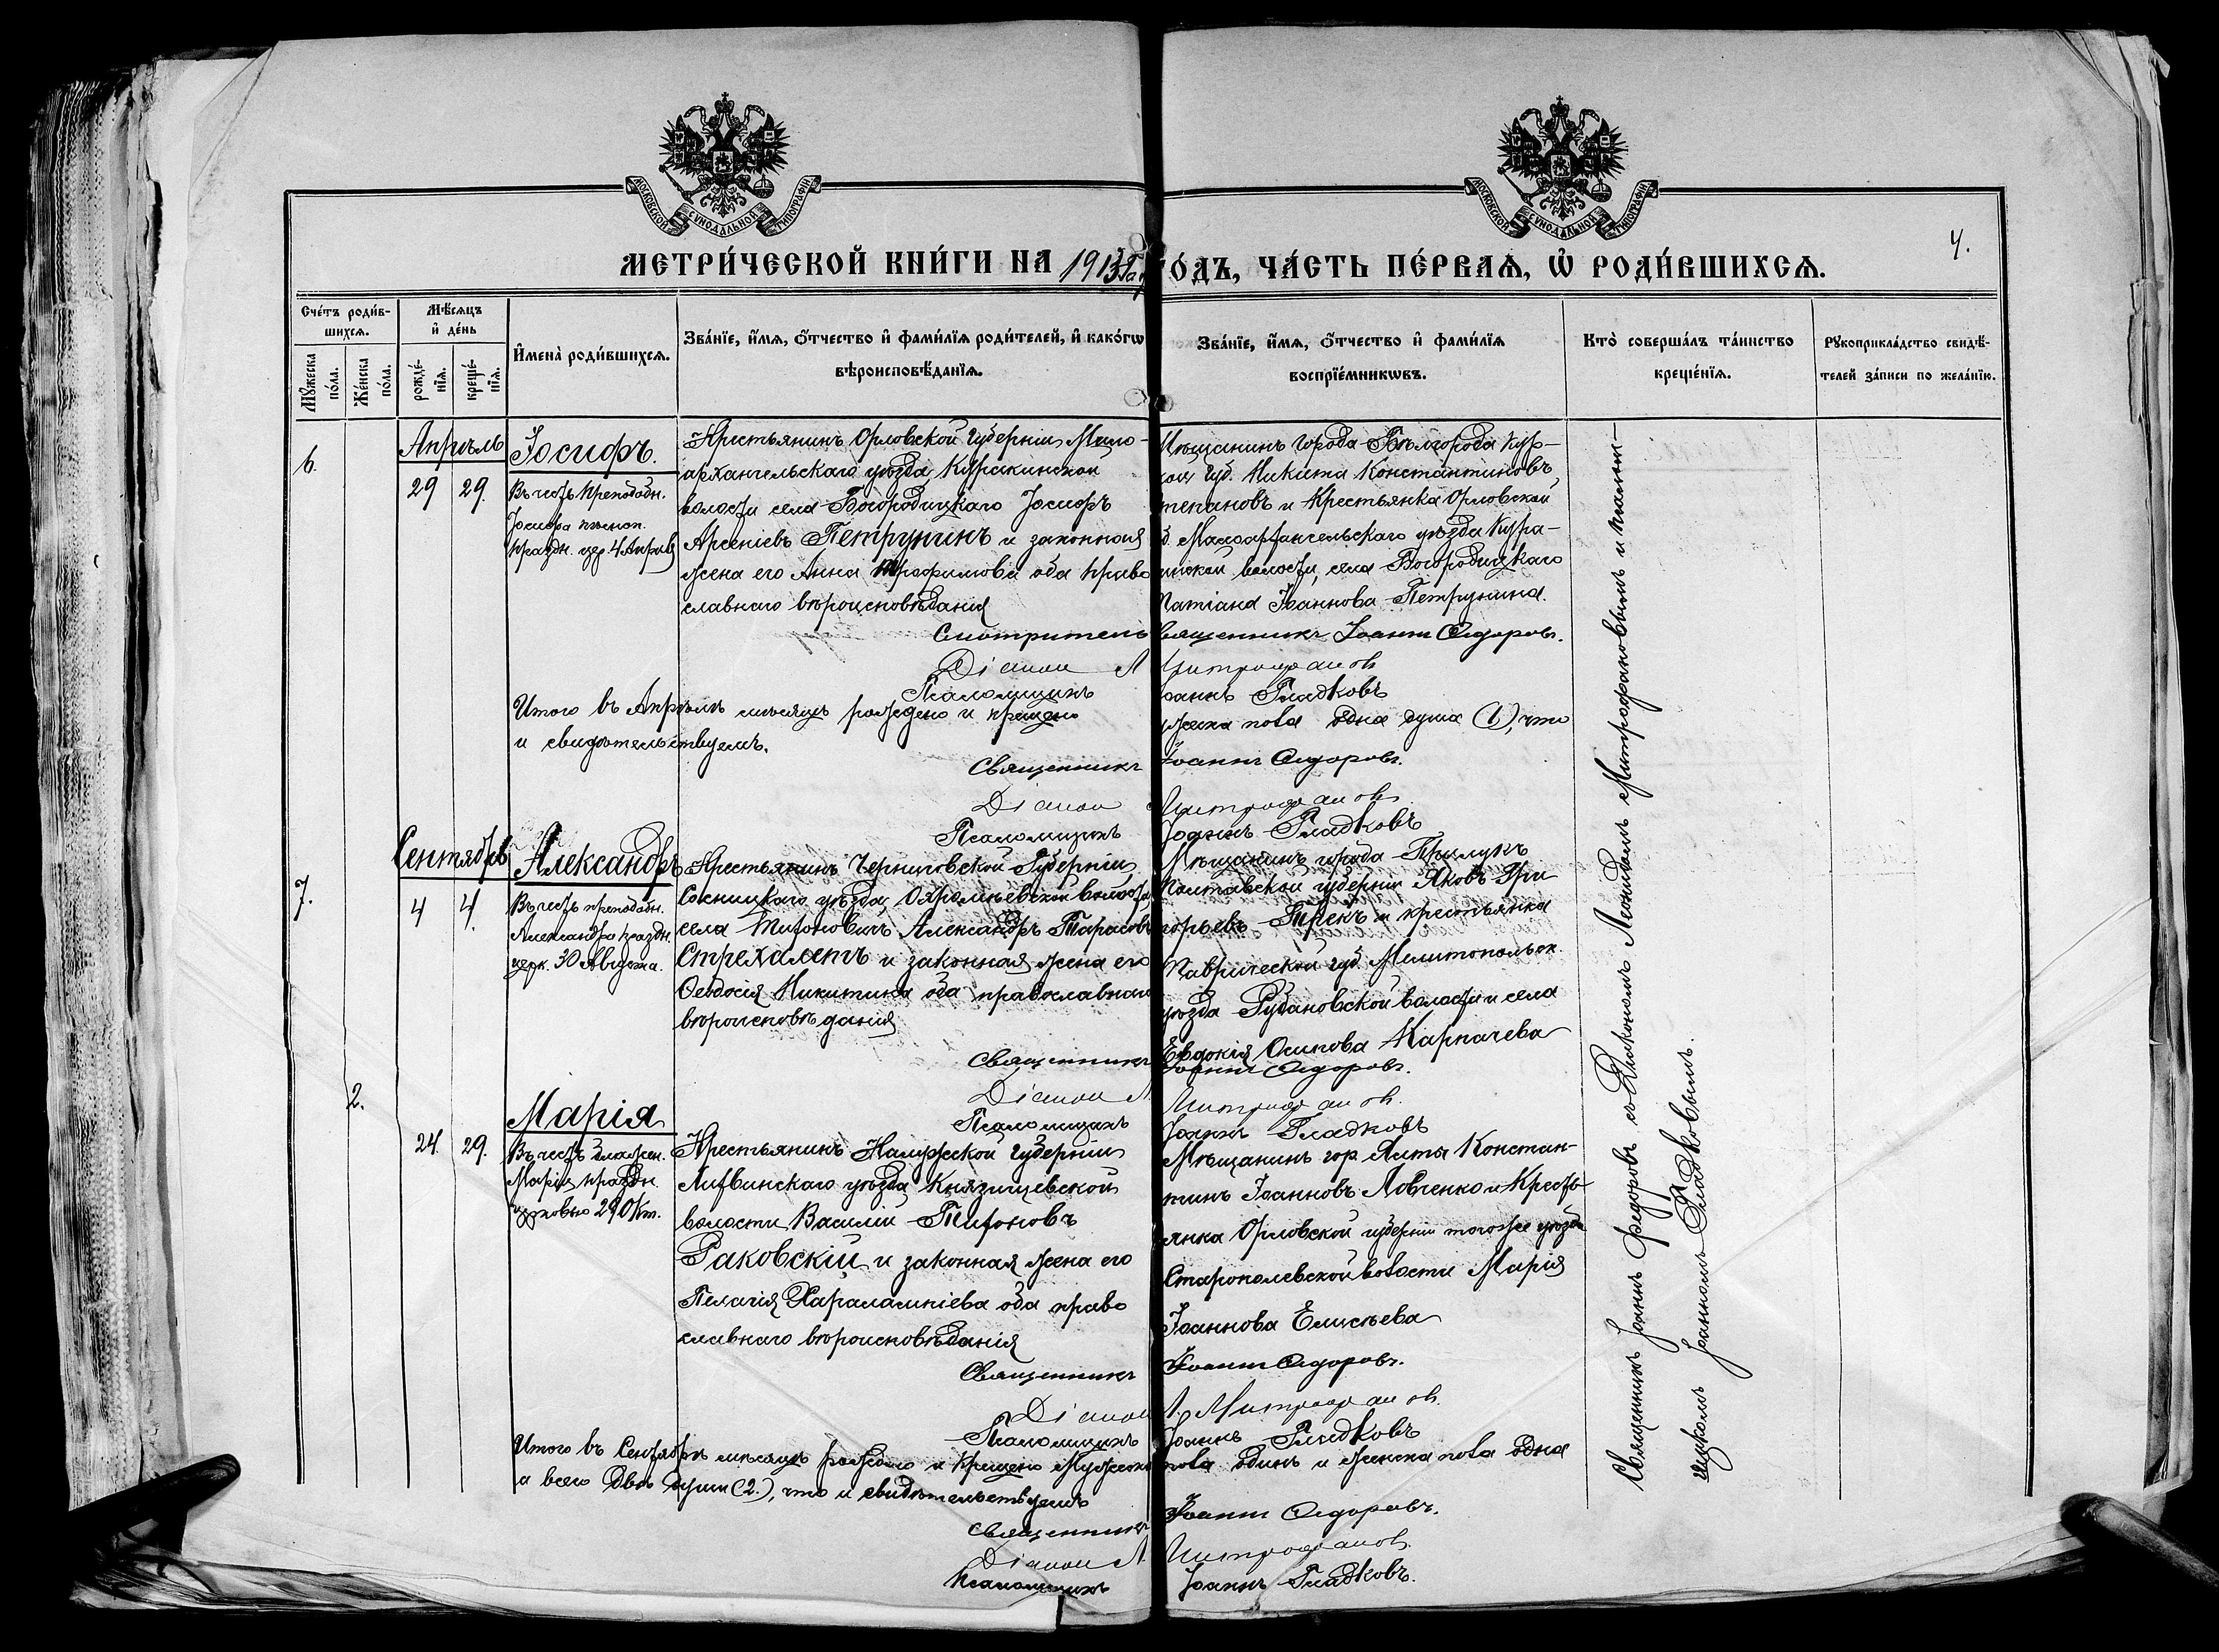 МОСКОВСКОЙ СѴНОДАЛЬНОЙ ТИПОГРАФІИ
МОСКОВСКОЙ СѴНОДАЛЬНОЙ ТИПОГРАФІИ
4.
МЕТРИ́ЧЕСКОЙ КНИ́ГИ НА 1913 Го́ДЪ, ЧА́СТЬ ПЕ́РВАѦ, Ѡ҆ РОДИ́ВШИХСѦ.
Сче́тъ роди́в-
шихсѧ.
Мꙋ́жеска
по́ла.
Же́нска
по́ла.
Мѣ́сѧцъ
и҆ де́нь
рожде́-
нїѧ.
креще́-
нїѧ.
И҆мена̀ роди́вшихсѧ.
Зва́нїе, и҆́мѧ, ѻ҆́тчество и҆ фами́лїѧ роди́телей, и҆ како́гѡ
вѣроисповѣ́данїѧ.
Зва́нїе, и҆́мѧ, ѻ҆́тчество и҆ фами́лїѧ
воспрїе́мникѡвъ.
Кто̀ соверша́лъ та́инство
креще́нїѧ.
Рꙋкоприкла́дство свидѣ́-
телей за́писи по жела́нїю.
6.
Апрѣль
29 29.
Іосифъ.
Въ честь преподобн.
Іосифа пѣсноп.
праздн. цер 4 Апрѣля
Крестьянинъ Орловской губерніи Мало-
архангельскаго уѣзда, Куракинской
волости села Богородицкаго Іосифъ
Арсеніевъ Петрунинъ и законная
жена его Анна Трофимова оба право
славнаго вѣроисповѣданія
Мѣщанинъ города Бѣлгорода Кур-
ской губ. Никита Константиновъ
Степановъ и Крестьянка Орловской
губ. Малоархангельскаго уѣзда Кура-
кинской волости, села Богородицкаго
Татіана Іоаннова Петрунина.
Смотритель Священникъ Іоаннъ Ѳедоровъ.
Діакон Л Митрофановъ
Псаломщикъ Іоаннъ Гладковъ
Итого въ Апрѣлѣ мѣсяцѣ рождено и крещено мужеска пола одна душа (1), что
и свидѣтельствуемъ.
Священникъ Іоаннъ Ѳедоровъ.
Діакон Митрофановъ
Псаломщикъ Іоаннъ Гладковъ
7.
Сентябрь
4 4.
Александръ
Въ честь преподобн.
Александра праздн.
церк. 30 Августа.
Крестьянинъ Черниговской Губерніи
Сосницкаго уѣзда, Охромѣевской волости
села Тихоновичъ Александръ Тарасовъ
Стрехалетъ и законная жена его
Ѳеодосія Никитина оба православнаго
вѣроисповѣданія
Мѣщанинъ города Прилукъ
Полтавской губерніи Яковъ Гри-
горьевъ Грекъ и крестьянка
Таврической губ. Мелитопольск.
уѣзда Рубановской волости и села
Евдокія Осипова Карпачева
Священникъ Іоаннъ Ѳедоровъ.
Діакон Л Митрофановъ.
Псаломщикъ Іоаннъ Гладковъ
2.
24 29.
Марія
Въ честь блажен.
Маріи праздн.
церковью 29 Окт.
Крестьянинъ Калужской губерніи
Лихвинскаго уѣзда Княжищевской
волости Василій Тихоновъ
Раковскій и законная жена его
Пелагія Харалампіева оба право
славнаго вѣроисповѣданія
Мѣщанинъ гор Ялты Констан-
тинъ Іоанновъ Ловченко и Кресть-
янка Орловской губерніи того же уѣзда
Старополевской волости Марія
Іоаннова Елисѣева
Священникъ Іоаннъ Ѳедоровъ.
Діакон Л. Митрофановъ.
Псаломщикъ Іоаннъ Гладковъ
Итого въ Сентябрѣ мѣсяцѣ рождено и крещено мужеска пола одинъ и женска пола одна
а всего двѣ души (2.), что и свидѣтельствуемъ
Священникъ Іоаннъ Ѳедоровъ.
Діакон Л. Митрофановъ.
Псаломщикъ Іоаннъ Гладковъ.
Священникъ Іоаннъ Ѳедоровъ съ Діакономъ Леонидомъ Митрофановымъ и псалом-
щикомъ Іоанномъ Гладковымъ.